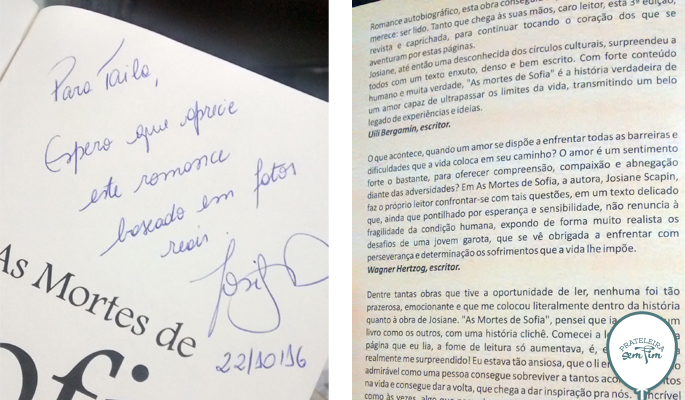 Para Taila,
Espero que aprecie
este romance
baseado em fatos
reais.
As Mortes de
22/10/16
Romance autobiográfico, esta obra
merece: ser lido. Tanto que chega às suas mãos, caro leitor, esta 3ª edição,
revista e caprichada, para continuar tocando o coração dos que se
aventuram por estas páginas.
Josiane, até então uma desconhecida dos círculos culturais, surpreendeu a
todos com um texto enxuto, denso e bem escrito. Com forte conteúdo
humano e muita verdade, "As mortes de Sofia" é a história verdadeira de
um amor capaz de ultrapassar os limites da vida, transmitindo um belo
legado de experiências e ideias.
Uili Bergamin, escritor.
O que acontece, quando um amor se dispõe a enfrentar todas as barreiras e
dificuldades que a vida coloca em seu caminho? O amor é um sentimento
forte o bastante, para oferecer compreensão, compaixão e abnegação
diante das adversidades? Em As Mortes de Sofia, a autora, Josiane Scapin,
faz o próprio leitor confrontar-se com tais questões, em um texto delicado
que, ainda que pontilhado por esperança e sensibilidade, não renuncia à
fragilidade da condição humana, expondo de forma muito realista os
desafios de uma jovem garota, que se vê obrigada a enfrentar com
perseverança e determinação os sofrimentos que a vida lhe impõe.
Wagner Hertzog, escritor.
Dentre tantas obras que tive a oportunidade de ler, nenhuma foi tão
prazerosa, emocionante e que me colocou literalmente dentro da história
quanto à obra de Josiane. "As Mortes de Sofia", pensei que um
livro como os outros, com uma história clichê. Comecei a
página que eu lia, a fome de leitura só aumentava, é,
realmente me surpreendido! Eu estava tão ansiosa, que o li
admirável como uma pessoa consegue sobreviver a tantos
na vida e consegue dar a volta, que chega a dar inspiração pra nós.
como às vezes, algo
PRATELEIRA
Sem Fim